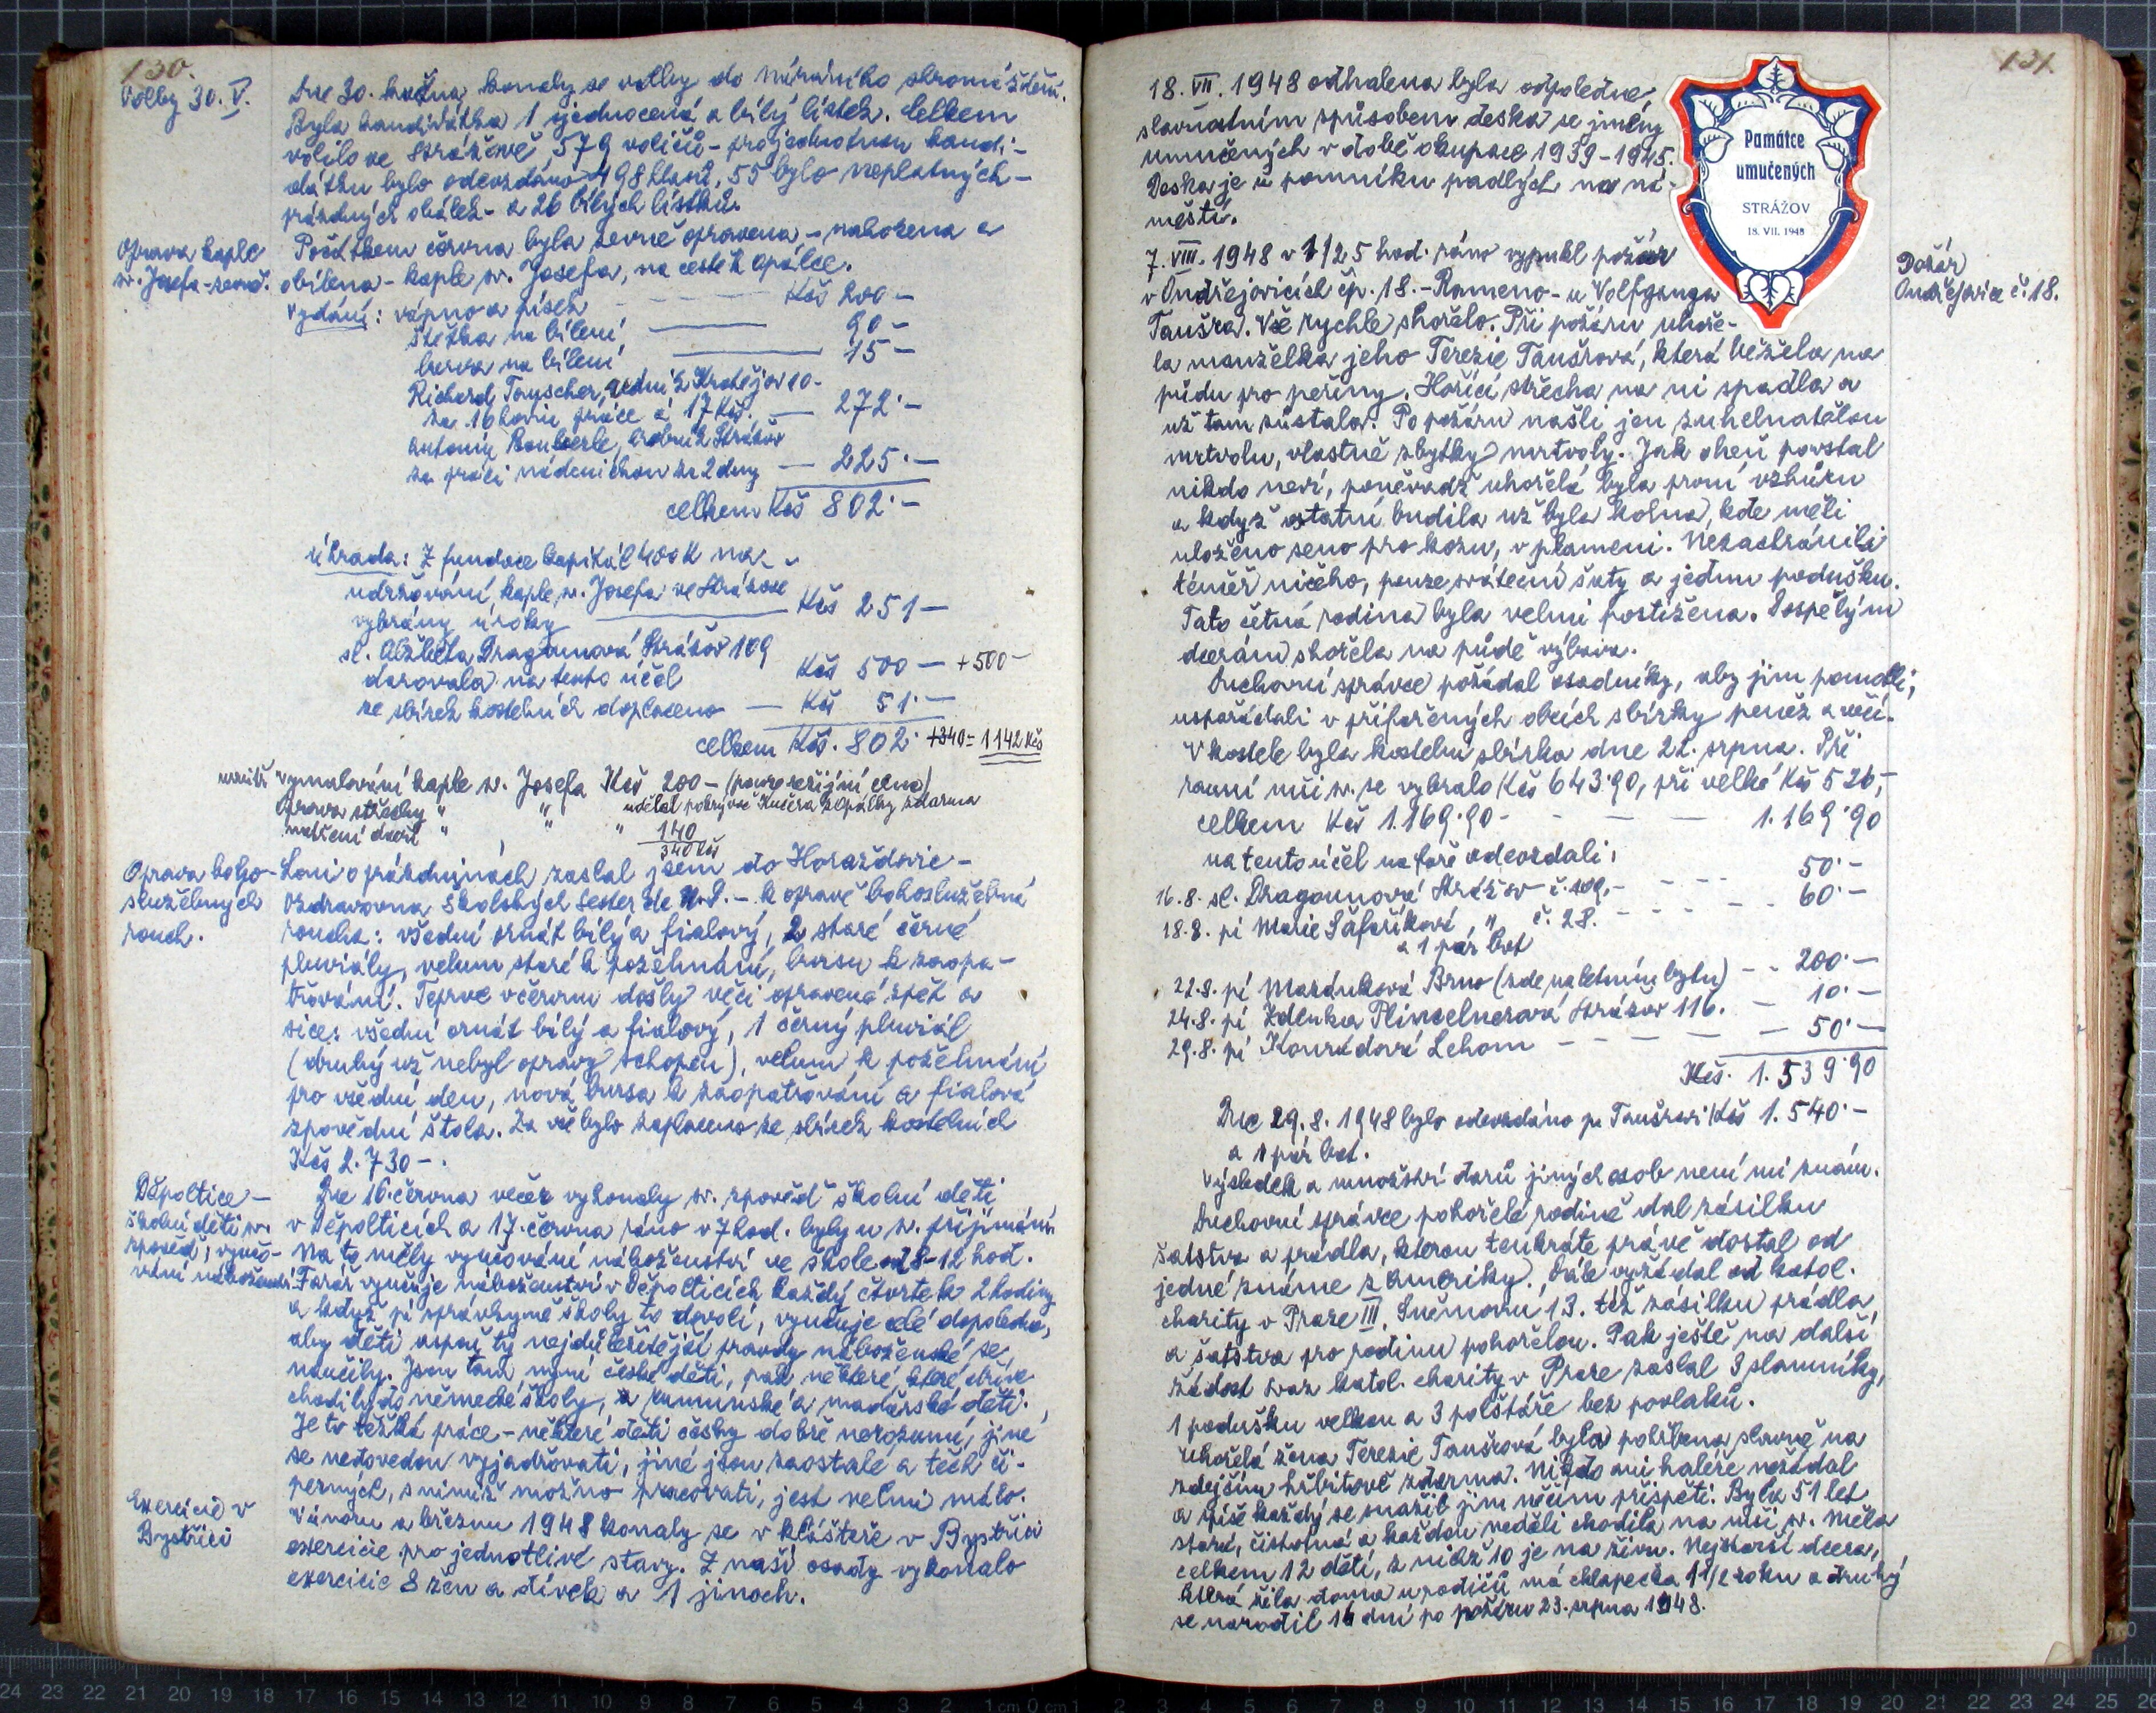 130.
Volby 30. V.
Dne 30. května konaly se volby do Národního shromáždění.
Byla kandidátka 1 sjednocená a bílý lístek. Celkem
volilo ve Strážově 579 voličů - pro jednotnou kandi-
dátku bylo odevzdáno 498 hlasů, 55 bylo neplatných -
prázdných obálek - a 26 bílých lístků.
Oprava kaple
sv. Josefa - zevně.
Počátkem června byla zevně opravena - nahozena a
obílena - kaple sv. Josefa, na cestě k Opálce.
Vydání: vápno a písek - - - Kčs 200 -
štětka na bílení, 90 -
barva na bílení 15 -
Richard Tauscher, zedník Kratějov 10 -
za 16 hodin práce á 17 Kčs. - 272·-
Antonín Bauberle, hrobník Strážov
za práci nádenickou za 2 dny - 225·-
celkem Kčs 802·-
úhrada: Z fundace kapitál 400 K na
udržování kaple sv. Josefa ve Strážově
vybrány úroky Kčs 251 -
sl. Alžběta Dragounová Strážov 109
darovala na tento účel Kčs 500 - + 500 -
ze sbírek kostelních doplaceno - Kčs 51·-
celkem Kčs. 802· +340 = 1142 Kčs
uvnitř vymalování kaple sv. Josefa Kčs 200 - (pouze režijní cena)
oprava střechy " " udělal pokrývač Kučera z Opálky zdarma
natření dveří " " " 140
340 Kčs
Oprava boho-
služebných
rouch.
Loni o prázdninách zaslal jsem do Horažďovic -
Ozdravovna Školských Sester de N.D. - k opravě bohoslužebná
roucha: všední ornát bílý a fialový, 2 staré černé
pluviály, velum staré k požehnání, bursu k zaopa-
třování. Teprve v červnu došly věci opravené zpět a
sice: všední ornát bílý a fialový, 1 černý pluviál
(druhý už nebyl opravy schopen), velum k požehnání
pro všední den, nová bursa k zaopatřování a fialová
zpovědní štola. Za vše bylo zaplaceno ze sbírek kostelních
Kčs 2.730 -.
Děpoltice -
školní děti sv.
zpověď; vyučo-
vání náboženství.
Dne 16. června večer vykonaly sv. zpověď školní děti
v Děpolticích a 17. června ráno v 7 hod. byly u sv. přijímání.
Na to měly vyučování náboženství ve škole od 8-12 hod.
Farář vyučuje náboženství v Děpolticích každý čtvrtek 2 hodiny
a když pí správkyně školy to dovolí, vyučuje celé dopoledne,
aby děti aspoň ty nejdůležitější pravdy náboženské se
naučily. Jsou tam nyní české děti, pak některé, které dříve
chodily do německé školy, a rumunské a maďarské děti.
Je to těžká práce - některé děti česky dobře nerozumí, jiné
se nedovedou vyjadřovati, jiné jsou zaostalé a těch či-
perných, s nimiž možno pracovati, jest velmi málo.
Exercicie v
Bystřici
V únoru a březnu 1948 konaly se v klášteře v Bystřici
exercicie pro jednotlivé stavy. Z naší osady vykonalo
exercicie 8 žen a dívek a 1 jinoch.
131.
18. VII. 1948 odhalena byla odpoledne,
slavnostním způsobem deska se jmény
umučených v době okupace 1939-1945.
Deska je u pomníku padlých na ná-
městí.
Památce
umučených
STRÁŽOV
18. VII. 1948
Požár
Ondřejovice č. 18.
7. VIII. 1948 v 1/2 5 hod. ráno vypukl požár
v Ondřejovicích čp. 18. - Rameno - u Volfganga
Taušra. Vše rychle shořelo. Při požáru uhoře-
la manželka jeho Terezie Taušrová, která běžela na
půdu pro peřiny. Hořící střecha na ni spadla a
už tam zůstala. Po požáru našli jen zuhelnatělou
mrtvolu, vlastně zbytky mrtvoly. Jak oheň povstal
nikdo neví, poněvadž uhořelá byla první vzhůru
a když ostatní budila už byla kolna, kde měli
uloženo seno pro kozu, v plameni. Nezachránili
téměř ničeho, pouze sváteční šaty a jednu podušku.
Tato četná rodina byla velmi postižena. Dospělým
dcerám shořela na půdě výbava.
Duchovní správce požádal osadníky, aby jim pomohli;
uspořádali v přifařených obcích sbírky peněz a věcí.
V kostele byla kostelní sbírka dne 22. srpna. Při
ranní mši sv. se vybralo Kčs 643·90, při velké Kčs 526,-
celkem Kčs 1.169·90 - - - - 1.169·90
na tento účel na faře odevzdali:
16.8. sl. Dragounová Strážov č. 109,- - - - 50·-
18.8. pí Marie Šafaříková, " č. 28. - - - - 60·-
a 1 pár bot
22.8. pí Mazánková Brno (zde na letním bytu) - - 200·-
24.8. pí Zdenka Plinzelnerová Strážov 116. - 10·-
29.8. pí Konrádová Lehom - - - - - 50·-
Kčs. 1.539·90
Dne 29.8. 1948 bylo odevzdáno p. Taušrovi Kčs 1.540·-
a 1 pár bot.
Výsledek a množství darů jiných osob není mi znám.
Duchovní správce pohořelé rodině dal zásilku
šatstva a prádla, kterou tenkráte právě dostal od
jedné známé z Ameriky. Dále vyžádal od katol.
charity v Praze III, Sněmovní 13. též zásilku prádla
a šatstva pro rodinu pohořelou. Pak ještě na další
žádost svaz katol. charity v Praze zaslal 3 slamníky,
1 podušku velkou a 3 polštáře bez povlaků.
Uhořelá žena Terezie Taušrová byla pohřbena slavně na
zdejším hřbitově zdarma. Nikdo ani haléře nežádal
a spíše každý se snažil jim něčím přispěti. Byla 51 let
stará, čistotná a každou neděli chodila na mši sv. Měla
celkem 12 dětí, z nichž 10 je na živu. Nejstarší dcera,
která žila doma u rodičů má chlapečka 1 1/2 roku a druhý
se narodil 14 dní po požáru 23. srpna 1948.